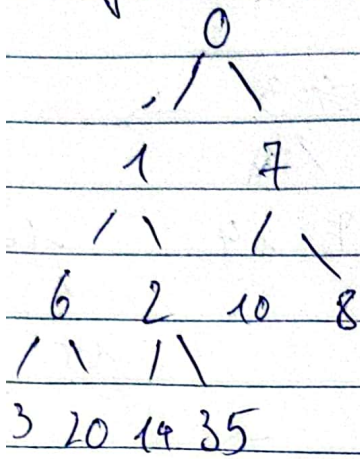 0
1 7
6 2 10 8
3 20 14 35